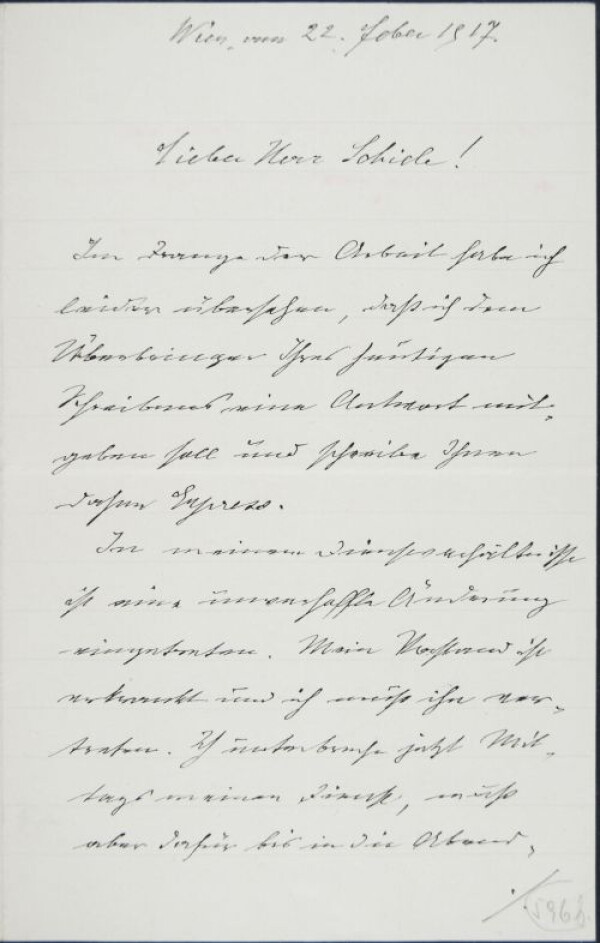 Wien, am 22. Feber 1917.
Lieber Herr Schiele!
Im Drange der Arbeit habe ich
leider übersehen, daß ich dem
Überbringer Ihres heutigen
Schreibens eine Antwort mit-
geben soll und schreibe Ihnen
daher Express.
In meinem Dienstverhältnisse
ist eine unverhoffte Änderung
eingetreten. Mein Vorstand ist
erkrankt und ich muß ihn ver-
treten. Ich unterbreche jetzt Mit-
tags meinen Dienst, muß
aber dafür bis in die Abend-
./.